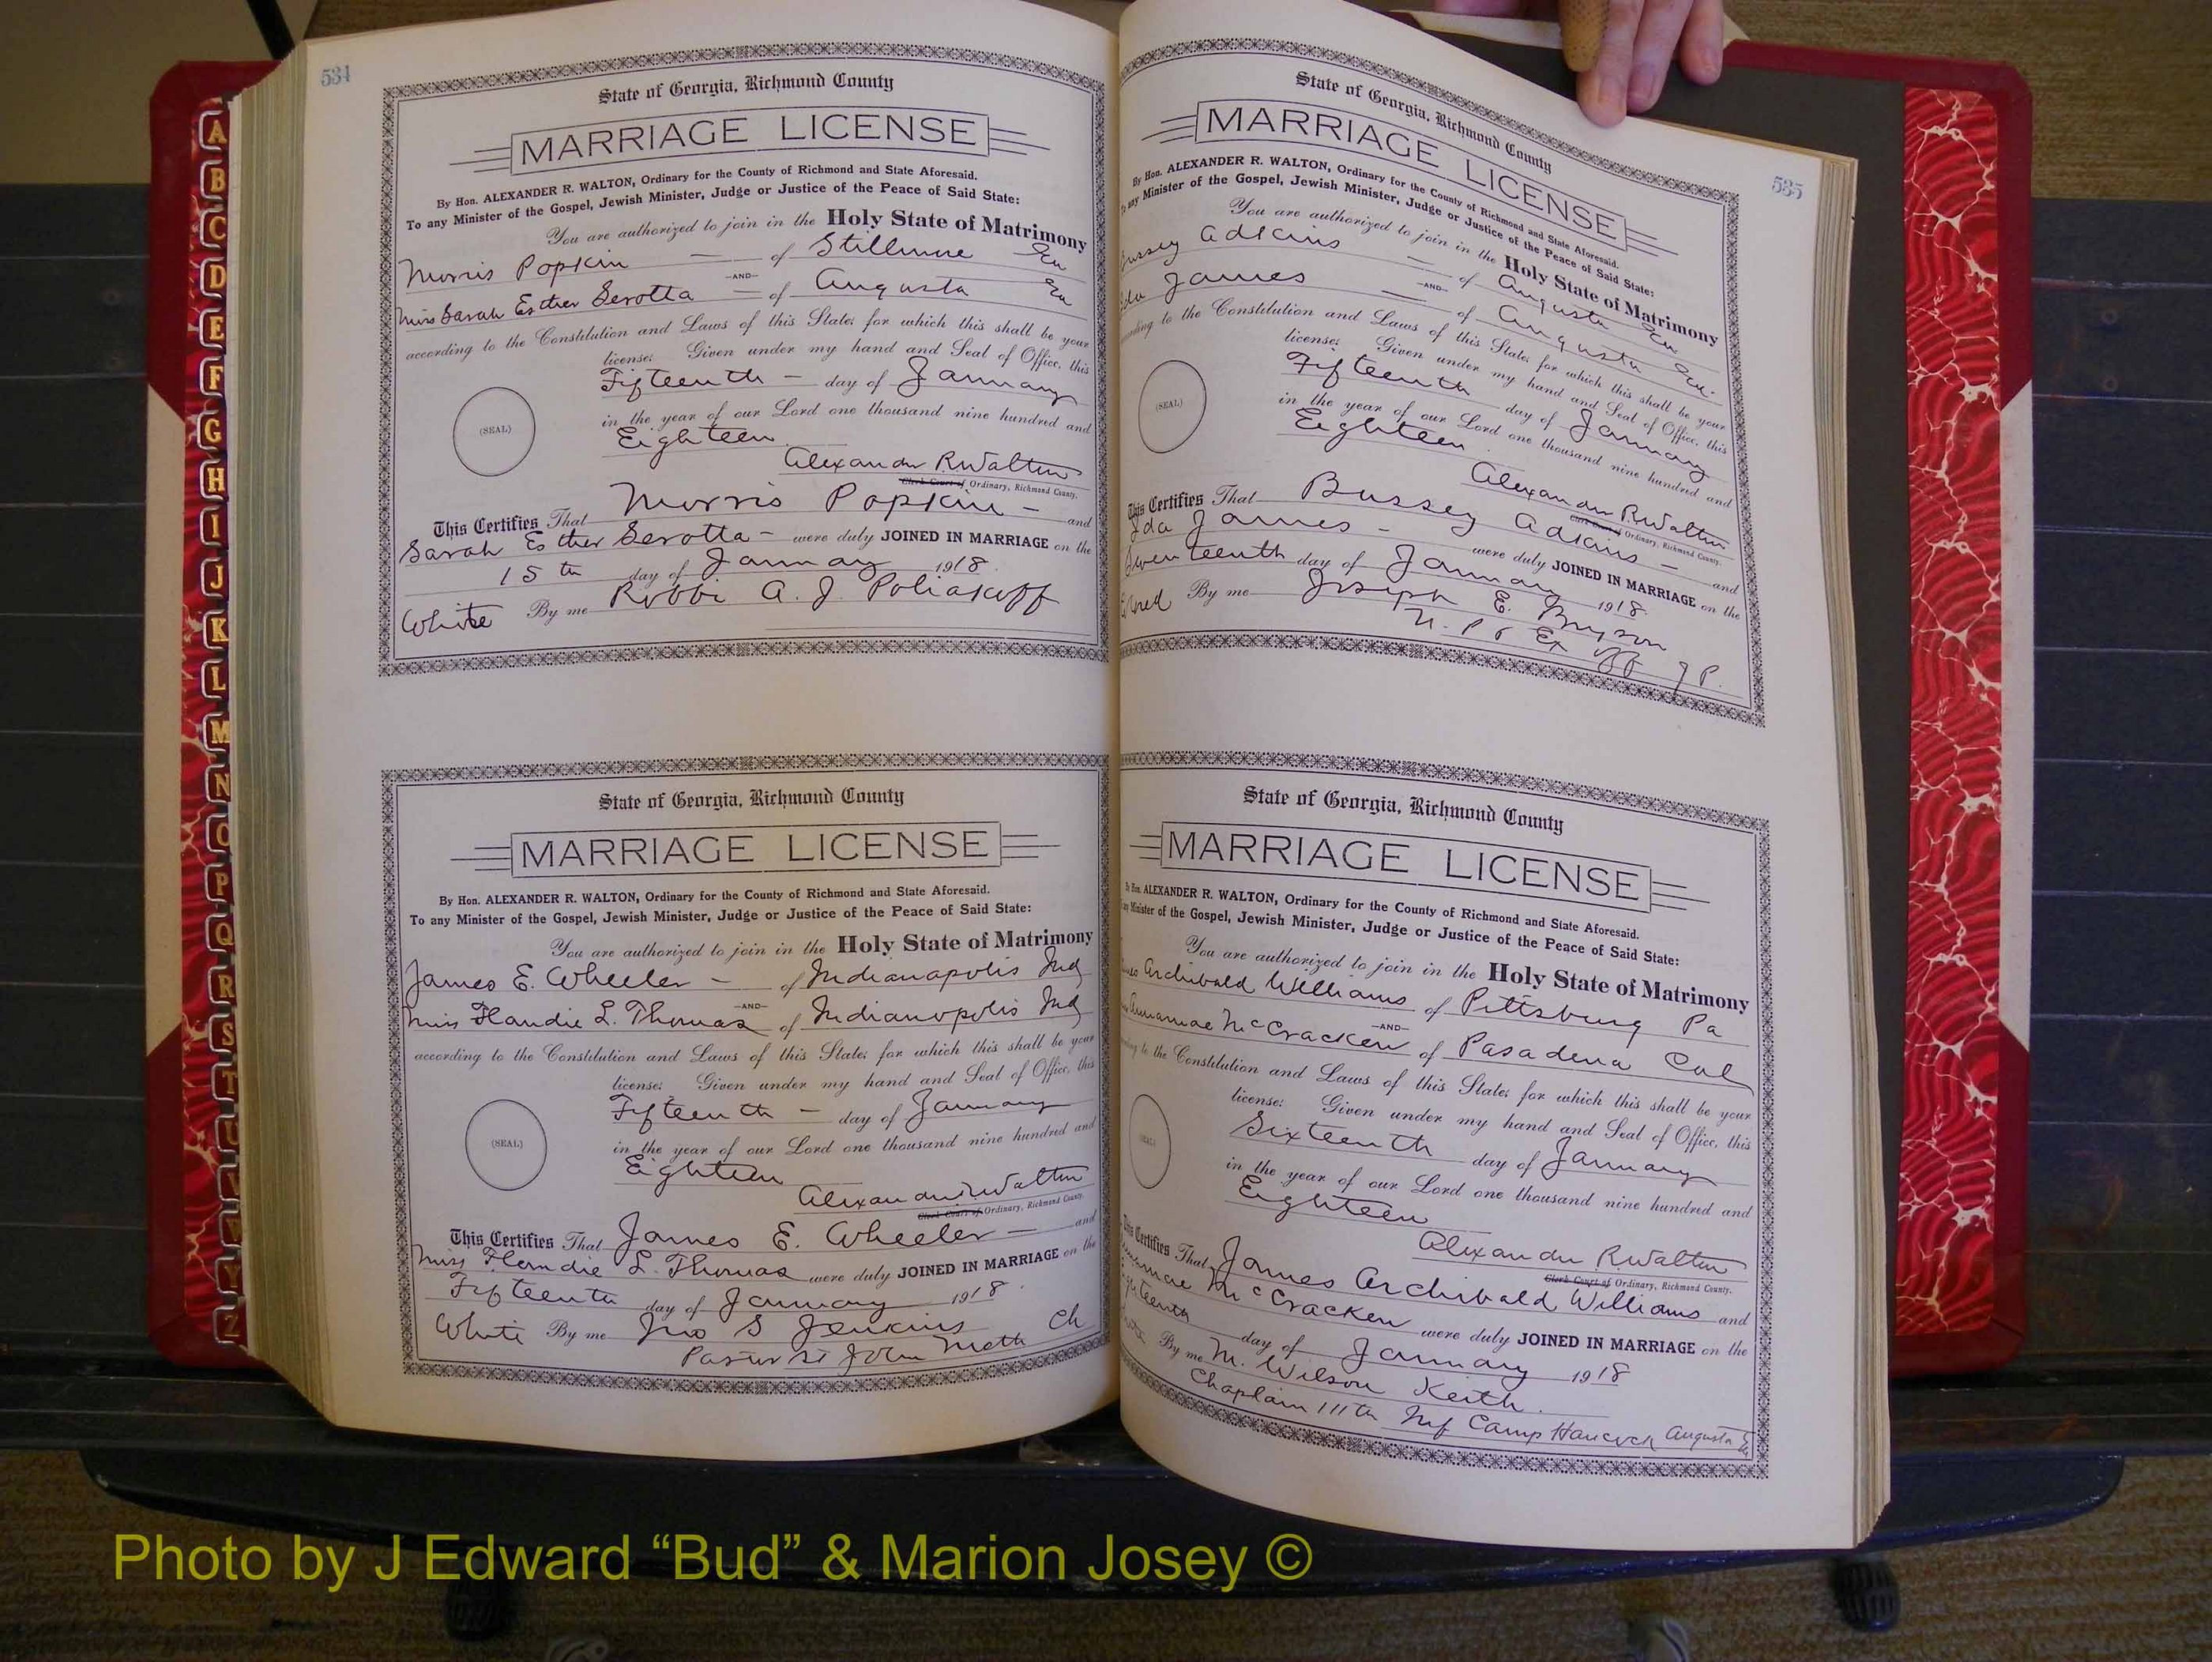 534
State of Georgia, Richmond County
MARRIAGE LICENSE
By Hon. ALEXANDER R. WALTON, Ordinary for the County of Richmond and State Aforesaid.
To any Minister of the Gospel, Jewish Minister, Judge or Justice of the Peace of Said State:
You are authorized to join in the Holy State of Matrimony
Morris Popkin — of Stillmore Ga
—AND—
Miss Sarah Esther Serotta — of Augusta Ga
according to the Constitution and Laws of this State; for which this shall be your
license: Given under my hand and Seal of Office, this
Fifteenth — day of January
in the year of our Lord one thousand nine hundred and
Eighteen
(SEAL)
Alexander R. Walton
Clerk Court of Ordinary, Richmond County.
This Certifies That Morris Popkin — and
Sarah Esther Serotta — were duly JOINED IN MARRIAGE on the
15th day of January 1918
White By me Rabbi A. J. Poliakoff
State of Georgia, Richmond County
MARRIAGE LICENSE
By Hon. ALEXANDER R. WALTON, Ordinary for the County of Richmond and State Aforesaid.
To any Minister of the Gospel, Jewish Minister, Judge or Justice of the Peace of Said State:
You are authorized to join in the Holy State of Matrimony
James E. Wheeler — of Indianapolis Ind
—AND—
Miss L. Thomas of Indianapolis Ind
according to the Constitution and Laws of this State; for which this shall be your
license: Given under my hand and Seal of Office, this
Fifteenth — day of January
in the year of our Lord one thousand nine hundred and
Eighteen
(SEAL)
Alexander R. Walton
Clerk Court of Ordinary, Richmond County.
This Certifies That James E. Wheeler — and
Miss L. Thomas were duly JOINED IN MARRIAGE on the
Fifteenth day of January 1918
White By me Jno S Jenkins
Pastor St John Meth Ch
535
State of Georgia, Richmond County
MARRIAGE LICENSE
By Hon. ALEXANDER R. WALTON, Ordinary for the County of Richmond and State Aforesaid.
To any Minister of the Gospel, Jewish Minister, Judge or Justice of the Peace of Said State:
You are authorized to join in the Holy State of Matrimony
Bussey Adkins — of Augusta Ga
—AND—
Ida James — of Augusta Ga
according to the Constitution and Laws of this State; for which this shall be your
license: Given under my hand and Seal of Office, this
Fifteenth day of January
in the year of our Lord one thousand nine hundred and
Eighteen
(SEAL)
Alexander R. Walton
Clerk Court of Ordinary, Richmond County.
This Certifies That Bussey Adkins — and
Ida James — were duly JOINED IN MARRIAGE on the
day of January 1918
Colored By me Joseph E. Bryson
N. P & Ex off J P.
State of Georgia, Richmond County
MARRIAGE LICENSE
By Hon. ALEXANDER R. WALTON, Ordinary for the County of Richmond and State Aforesaid.
any Minister of the Gospel, Jewish Minister, Judge or Justice of the Peace of Said State:
You are authorized to join in the Holy State of Matrimony
Archibald Williams of Pittsburg Pa
—AND—
Annamae McCracken of Pasadena Cal
to the Constitution and Laws of this State; for which this shall be your
license: Given under my hand and Seal of Office, this
Sixteenth day of January
in the year of our Lord one thousand nine hundred and
Eighteen
(SEAL)
Alexander R. Walton
Clerk Court of Ordinary, Richmond County.
This Certifies That James Archibald Williams and
McCracken were duly JOINED IN MARRIAGE on the
day of January 1918
By me M. Wilson Keith.
Chaplain 111th Inf Camp Hancock Augusta Ga
A
B
C
D
E
F
G
H
I
J
K
L
M
N
O
P
Q
R
S
T
U
V
W
Y
Z
Photo by J Edward “Bud” & Marion Josey ©